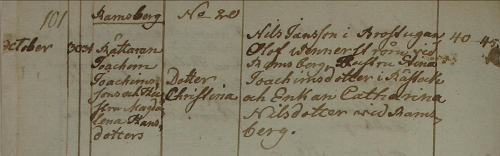 101 Ramsberg No 20
October 30 31 Rättaren
Joachim
Joachims
sons och Hu
stru Magda
lena Hans
dotters
Dotter
Christina
Nils Jansson i Brossugan 40-45
Olof wid
Ramsberg, Hustru
Joachimsdotter i
och Enkan Catharina
Nilsdotter wid Rams-
berg.